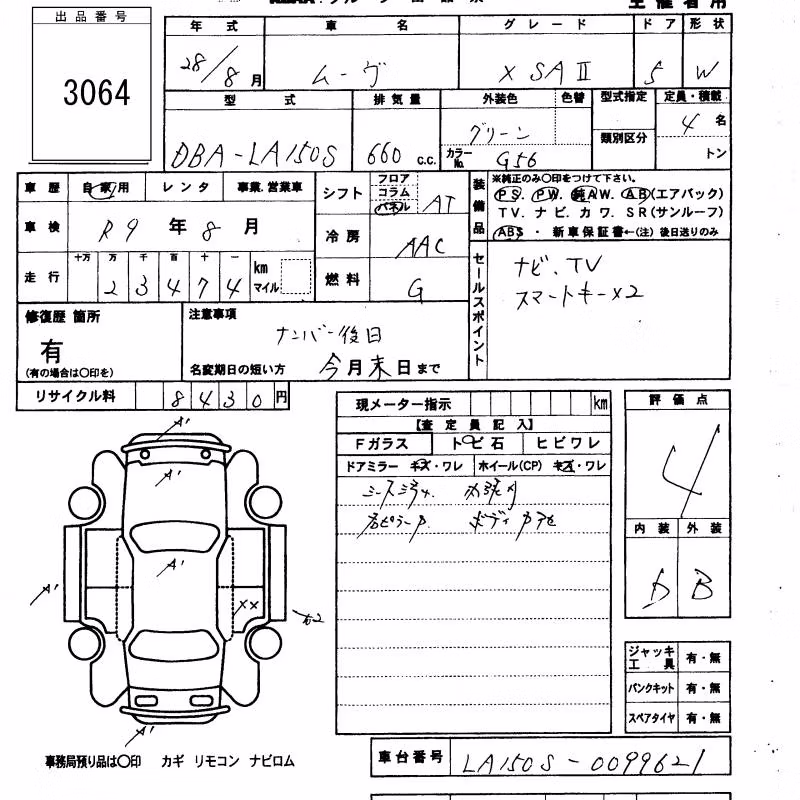 主催者用
出品番号
3064
年式 車名 グレード ドア 形状
28/8月 ムーヴ X SAⅡ 5 W
型式 排気量 外装色 色替 型式指定 定員・積載
DBA-LA150S 660 c.c. グリーン 類別区分 4名
カラーNo. G56 トン
車歴 自家用 レンタ 事業.営業車
車検 R9年8月
走行 十万 万 千 百 十 一
23474 km マイル
シフト フロア コラム パネル AT
冷房 AAC
燃料 G
装備品 ※純正のみ〇印をつけて下さい。
PS. PW. 純AW. AB(エアバック)
TV. ナビ. カワ. SR(サンルーフ)
ABS ・ 新車保証書←(注) 後日送りのみ
セールスポイント
ナビ、TV
スマートキー×2
修復歴 箇所
有
(有の場合は〇印を)
注意事項
ナンバー後日
名変期日の短い方 今月末日まで
リサイクル料 8430円
現メーター指示 km
【査定員記入】
Fガラス トビ石 ヒビワレ
ドアミラー キズ・ワレ ホイール(CP) キズ・ワレ
評価点
4
内装 外装
B
A'
A'
A'
A'
A'
XX
ジャッキ工具 有・無
パンクキット 有・無
スペアタイヤ 有・無
事務局預り品は〇印 カギ リモコン ナビロム
車台番号 LA150S-0099621